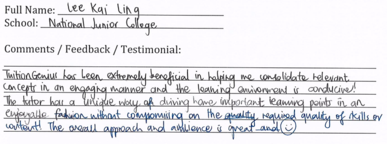 Full Name: Lee Kai Ling
School: National Junior College
Comments / Feedback / Testimonial:
TuitionGenius has been extremely beneficial in helping me consolidate relevant
concepts in an engaging manner and the learning environment is conducive!
The tutor has a unique way of driving home important learning points in an
enjoyable fashion without compromising on the quality required quality of skills or
content! The overall approach and ambience is great and